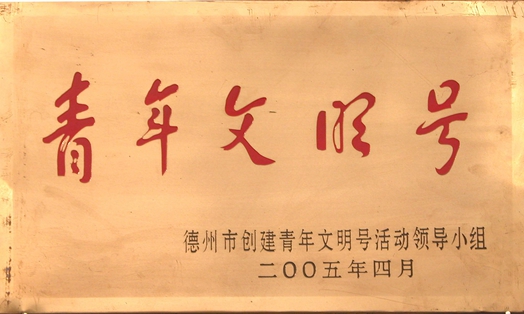 青年文明号
德州市创建青年文明号活动领导小组
二〇〇五年四月